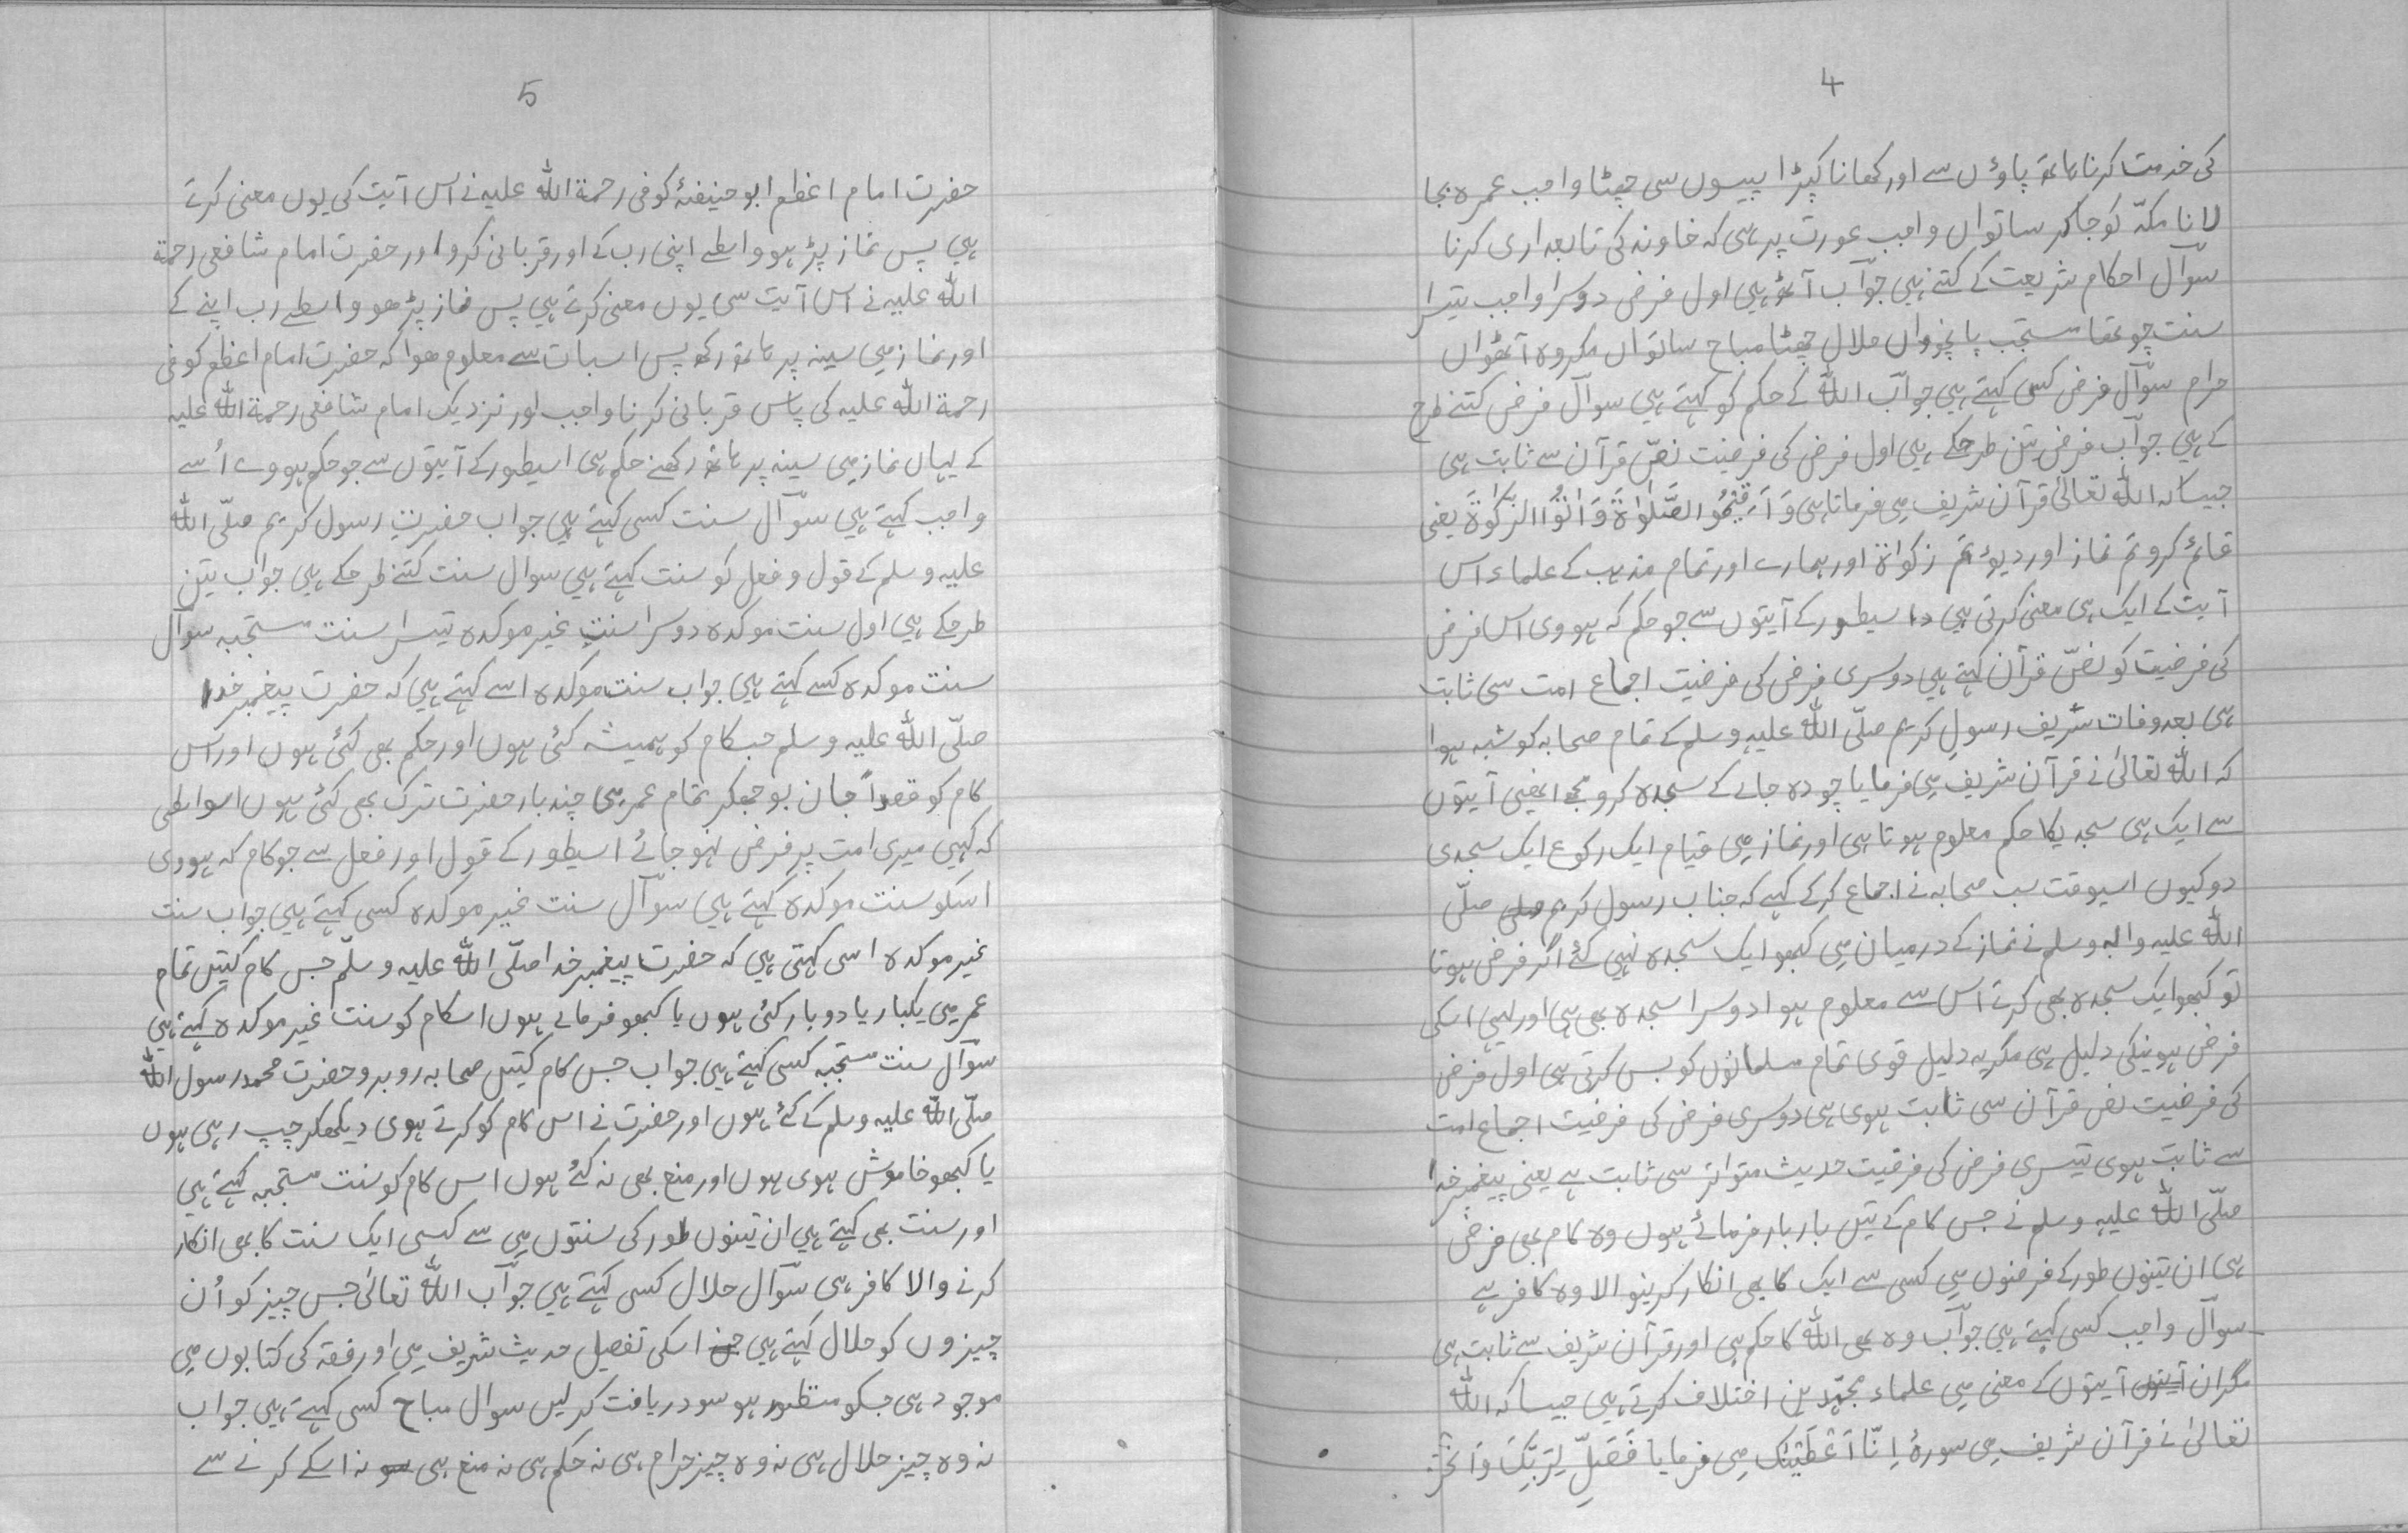 4
کی خدمت کرنا ہاتھ پاؤں سے اور کھانا کپڑا پیسوں سی چھٹا واجب عمرہ بجا
لانا مکہّ کو جا کر ساتواں واجب عورت پر ہی کہ خاوند کی تابعداری کرنا
سوآل احکام شریعت کے کتنے ہیں جوآب آٹھ ہیں اول فرض دوسرا واجب تیسرا
سنت چوتھا مستحب پانچواں حلال چھٹا مباح ساتواں مکروہ آٹھواں
حرام سوآل فرض کسی کہتے ہیں جوآب اللہ کے حکم کو کہتے ہیں سوآل فرض کتنے طرح
کے ہیں جوآب فرض تین طرحکے ہیں اول فرض کی فرضیت نصّ قرآن سے ثابت ہی
جیسا کہ اللہ تعالیٰ قرآن شریف میں فرماتا ہی وَ اَقِیْمُوا الصَّلٰوۃَ وَ اٰتُوا الزَّکٰوۃَ یعنی
قائم کرو تم نماز اور دیوٴ تم زکواۃ اور ہمارے اور تمام مذہب کے علماء اس
آیت کے ایک ہی معنی کرتی ہیں اسیطور کے آیتوں سے جو حکم کہ ہووی اس فرض
کی فرضیت کو نصّ قرآن کہتے ہیں دوسری فرض کی فرضیت اجماع امت سی ثابت
ہی بعد وفات شریف رسول کریم صلّی اللہ علیہ وسلم کے تمام صحابہ کو شبہ ہوا
کہ اللہ تعالیٰ نے قرآن شریف میں فرمایا چودہ جائے کے سجدہ کرو انھیں آیتوں
سے ایک ہی سجدیکا حکم معلوم ہوتا ہی اور نماز میں قیام ایک رکوع ایک سجدی
دو کیوں اسیوقت سب صحابہ نے اجماع کر کے کہے کہ جناب رسول کریم صلّی
اللہ علیہ والہ وسلم نے نماز کے درمیان میں کبھو ایک سجدہ نہیں کئے اگر فرض ہوتا
تو کبھو ایک سجدہ بھی کرتے اس سے معلوم ہوا دوسرا سجدہ بھی ہی اور یہی اسکی
فرض ہونیکی دلیل ہی مگر یہ دلیل قوی تمام مسلمانوں کو بس کرتی ہی اول فرض
کی فرضیت نص قرآن سی ثابت ہوی ہی دوسری فرض کی فرضیت اجماع امت
سے ثابت ہوی تیسری فرض کی فرضیت حدیث متواتر سی ثابت ہے یعنی پیغمبر خدا
صلّی اللہ علیہ وسلم نے جس کام کے تیں بار بار فرمائے ہوں وہ کام بھی فرض
ہی ان تینوں طور کے فرضوں میں کسی سے ایک کا بھی انکار کرنیوالا وہ کافر ہے
سوآل واجب کسی کہتے ہیں جوآب وہ بھی اللہ کا حکم ہی اور قرآن شریف سے ثابت ہی
مگر ان آیتوں آیتوں کے معنی میں علماء مجتہدین اختلاف کرتے ہیں جیسا کہ اللہ
تعالیٰ نے قرآن شریف میں سورۂ اِنَّا اَعْطَیْنٰکَ میں فرمایا فَصَلِّ لِرَبِّکَ وَانْحَرْ
5
حضرت امام اعظم ابو حنیفئہ کوفی رحمۃ اللہ علیہ نے اس آیت کی یوں معنی کرتے
ہیں پس نماز پڑہو واسطے اپنی رب کے اور قربانی کرو اور حضرت امام شافعی رحمۃ
اللہ علیہ نے اس آیت سی یوں معنی کرتے ہیں پس نماز پڑھو واسطے رب اپنے کے
اور نماز میں سینہ پر ہاتھ رکھو پس اسبات سے معلوم ھوا کہ حضرت امام اعظم کوفی
رحمۃ اللہ علیہ کی پاس قربانی کرنا واجب اور نزدیک امام شافعی رحمۃ اللہ علیہ
کے یہاں نماز میں سینہ پر ہاتھ رکھنے حکم ہی اسیطور کے آیتوں سے جو حکم ہووے اُسے
واجب کہتے ہیں سوآل سنت کسی کہتے ہیں جواب حضرت رسول کریم صلّی اللہ
علیہ وسلم کے قول و فعل کو سنت کہتے ہیں سوال سنت کتنے طرحکے ہیں جواب تین
طرحکے ہیں اول سنت موکدہ دوسرا سنت غیر موکدہ تیسرا سنت مستحبہ سوآل
سنت موکدہ کسے کہتے ہیں جواب سنت موکدہ اسے کہتے ہیں کہ حضرت پیغمبر خدا
صلّی اللہ علیہ وسلم جسکام کو ہمیشہ کئی ہوں اور حکم بھی کئی ہوں اور اس
کام کو قصداً جان بوجھکر تمام عمر میں چند بار حضرت ترک بھی کئی ہوں اسواسطی
کہ کہیں میری امت پر فرض نہو جائے اسیطور کے قول اور فعل سے جو کام کہ ہووی
اسکو سنت موکدہ کہتے ہیں سوآل سنت غیر موکدہ کسی کہتے ہیں جواب سنت
غیر موکدہ اسی کہتی ہیں کہ حضرت پیغمبر خدا صلّی اللہ علیہ وسلّم جس کام کیتیں تمام
عمر میں یکبار یا دو بار کئی ہوں یا کبھو فرمائے ہوں اسکام کو سنت غیر موکدہ کہتے ہیں
سوآل سنت مستحبہ کسی کہتے ہیں جواب جس کام کیتیں صحابہ روبرو حضرت محمد رسول اللہ
صلّی اللہ علیہ وسلم کے کئے ہوں اور حضرت نے اس کام کو کرتے ہوی دیکھکر چپ رہی ہوں
یا کبھو خاموش ہوی ہوں اور منع بھی نہ کئے ہوں اس کام کو سنت مستحبہ کہتے ہیں
اور سنت بھی کہتے ہیں ان تینوں طور کی سنتوں میں سے کسی ایک سنت کا بھی انکار
کرنے والا کافر ہی سوآل حلال کسی کہتے ہیں جوآب اللہ تعالیٰ جس چیز کو اُن
چیزوں کو حلال کہتے ہیں جن اسکی تفصیل حدیث شریف میں اور فقہ کی کتابوں میں
موجود ہی جسکو منظور ہو سو دریافت کر لیں سوال مباح کسی کہتے ہیں جواب
نہ وہ چیز حلال ہی نہ وہ چیز حرام ہی نہ حکم ہی نہ منع ہی نہ اسکے کرنے سے